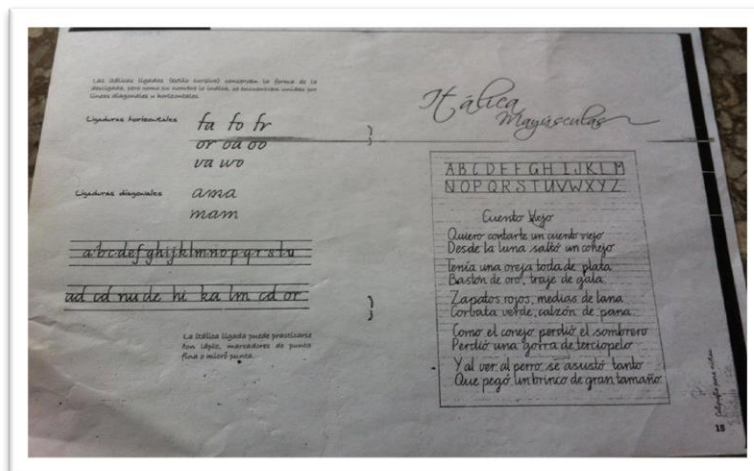 Las itálicas ligadas (estilo cursivo) conservan la forma de la
desligada, pero como su nombre lo indica, se encuentran unidas por
líneas diagonales u horizontales.
Ligaduras horizontales
fa fo fr
or oa oo
va wo
Ligaduras diagonales
ama
mam
a b c d e f g h i j k l m n o p q r s t u
ad cd nu de hi ka lm cd or
La itálica ligada puede practicarse
con lápiz, marcadores de punta
fina o micro punta.
Itálica
Mayúsculas
A B C D E F G H I J K L M
N O P Q R S T U V W X Y Z
Cuento Viejo
Quiero contarte un cuento viejo
Desde la luna saltó un conejo
Tenía una oreja toda de plata
Bastón de oro, traje de gala.
Zapatos rojos, medias de lana
Corbata verde, calzón de pana.
Como el conejo perdió el sombrero
Perdió una gorra de terciopelo
Y al ver al perro se asustó tanto
Que pegó un brinco de gran tamaño.
Caligrafía para niños
15